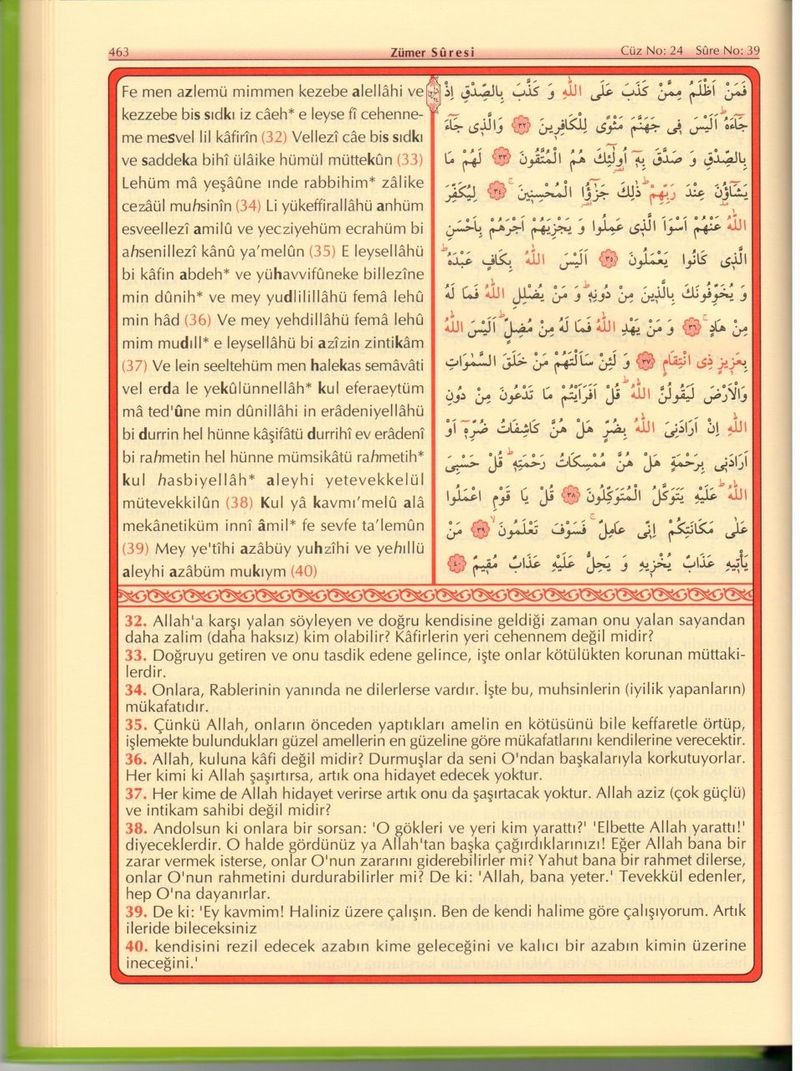 463
Zümer Sûresi
Cüz No: 24 Sûre No: 39
Fe men azlemü mimmen kezebe alellâhi ve
kezzebe bis sıdkı iz câeh* e leyse fî cehenne-
me mesvel lil kâfirîn (32) Vellezî câe bis sıdkı
ve saddeka bihî ülâike hümül müttekûn (33)
Lehüm mâ yeşâûne ınde rabbihim* zâlike
cezâül muhsinîn (34) Li yükeffirallâhü anhüm
esveellezî amilû ve yecziyehüm ecrahüm bi
ahsenillezî kânû ya’melûn (35) E leysellâhü
bi kâfin abdeh* ve yühavvifûneke billezîne
min dûnih* ve mey yudlilillâhü femâ lehû
min hâd (36) Ve mey yehdillâhü femâ lehû
mim mudıll* e leysellâhü bi azîzin zintikâm
(37) Ve lein seeltehüm men halekas semâvâti
vel erda le yekûlünnellâh* kul eferaeytüm
mâ ted'ûne min dûnillâhi in erâdeniyellâhü
bi durrin hel hünne kâşifâtü durrihî ev erâdenî
bi rahmetin hel hünne mümsikâtü rahmetih*
kul hasbiyellâh* aleyhi yetevekkelül
mütevekkilûn (38) Kul yâ kavmı’melû alâ
mekânetiküm innî âmil* fe sevfe ta’lemûn
(39) Mey ye'tîhi azâbüy yuhzîhi ve yehıllü
aleyhi azâbüm mukıym (40)
فَمَنْ اَظْلَمُ مِمَّنْ كَذَبَ عَلَى اللّٰهِ وَ كَذَّبَ بِالصِّدْقِ اِذْ
جَٓاءَهُۜ اَلَيْسَ فٖى جَهَنَّمَ مَثْوًى لِلْكَافِرٖينَ ﴿٣٢﴾ وَالَّذٖى جَٓاءَ
بِالصِّدْقِ وَ صَدَّقَ بِهٖٓ اُولٰٓئِكَ هُمُ الْمُتَّقُونَ ﴿٣٣﴾ لَهُمْ مَا
يَشَٓاؤُنَ عِنْدَ رَبِّهِمْۜ ذٰلِكَ جَزٰٓؤُا الْمُحْسِنٖينَۚ ﴿٣٤﴾ لِيُكَفِّرَ
اللّٰهُ عَنْهُمْ اَسْوَاَ الَّذٖى عَمِلُوا وَ يَجْزِيَهُمْ اَجْرَهُمْ بِاَحْسَنِ
الَّذٖى كَانُوا يَعْمَلُونَ ﴿٣٥﴾ اَلَيْسَ اللّٰهُ بِكَافٍ عَبْدَهُۜ
وَ يُخَوِّفُونَكَ بِالَّذٖينَ مِنْ دُونِهٖۜ وَ مَنْ يُضْلِلِ اللّٰهُ فَمَا لَهُ
مِنْ هَادٍۚ ﴿٣٦﴾ وَ مَنْ يَهْدِ اللّٰهُ فَمَا لَهُ مِنْ مُضِلٍّۜ اَلَيْسَ اللّٰهُ
بِعَزٖيزٍ ذِى انْتِقَامٍ ﴿٣٧﴾ وَ لَئِنْ سَاَلْتَهُمْ مَنْ خَلَقَ السَّمٰوَاتِ
وَالْاَرْضَ لَيَقُولُنَّ اللّٰهُۜ قُلْ اَفَرَاَيْتُمْ مَا تَدْعُونَ مِنْ دُونِ
اللّٰهِ اِنْ اَرَادَنِىَ اللّٰهُ بِضُرٍّ هَلْ هُنَّ كَاشِفَاتُ ضُرِّهٖٓ اَوْ
اَرَادَنٖى بِرَحْمَةٍ هَلْ هُنَّ مُمْسِكَاتُ رَحْمَتِهٖۜ قُلْ حَسْبِىَ
اللّٰهُۜ عَلَيْهِ يَتَوَكَّلُ الْمُتَوَكِّلُونَ ﴿٣٨﴾ قُلْ يَا قَوْمِ اعْمَلُوا
عَلٰى مَكَانَتِكُمْ اِنّٖى عَامِلٌۚ فَسَوْفَ تَعْلَمُونَۙ ﴿٣٩﴾ مَنْ
يَاْتٖيهِ عَذَابٌ يُخْزٖيهِ وَ يَحِلُّ عَلَيْهِ عَذَابٌ مُقٖيمٌ ﴿٤٠﴾
32. Allah'a karşı yalan söyleyen ve doğru kendisine geldiği zaman onu yalan sayandan
daha zalim (daha haksız) kim olabilir? Kâfirlerin yeri cehennem değil midir?
33. Doğruyu getiren ve onu tasdik edene gelince, işte onlar kötülükten korunan müttaki-
lerdir.
34. Onlara, Rablerinin yanında ne dilerlerse vardır. İşte bu, muhsinlerin (iyilik yapanların)
mükafatıdır.
35. Çünkü Allah, onların önceden yaptıkları amelin en kötüsünü bile keffaretle örtüp,
işlemekte bulundukları güzel amellerin en güzeline göre mükafatlarını kendilerine verecektir.
36. Allah, kuluna kâfi değil midir? Durmuşlar da seni O'ndan başkalarıyla korkutuyorlar.
Her kimi ki Allah şaşırtırsa, artık ona hidayet edecek yoktur.
37. Her kime de Allah hidayet verirse artık onu da şaşırtacak yoktur. Allah aziz (çok güçlü)
ve intikam sahibi değil midir?
38. Andolsun ki onlara bir sorsan: 'O gökleri ve yeri kim yarattı?' 'Elbette Allah yarattı!'
diyeceklerdir. O halde gördünüz ya Allah'tan başka çağırdıklarınızı! Eğer Allah bana bir
zarar vermek isterse, onlar O'nun zararını giderebilirler mi? Yahut bana bir rahmet dilerse,
onlar O'nun rahmetini durdurabilirler mi? De ki: 'Allah, bana yeter.' Tevekkül edenler,
hep O'na dayanırlar.
39. De ki: 'Ey kavmim! Haliniz üzere çalışın. Ben de kendi halime göre çalışıyorum. Artık
ileride bileceksiniz
40. kendisini rezil edecek azabın kime geleceğini ve kalıcı bir azabın kimin üzerine
ineceğini.'